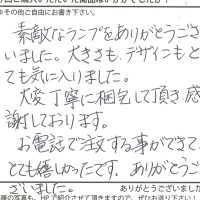 ※その他ご自由にお書き下さい。
素敵なランプをありがとうござ
いました。大きさも、デザインもと
ても気に入りました。
大変丁寧に梱包して頂き感
謝しております。
お電話で注文する事ができて、
とても嬉しかったです。ありがとうご
ざいました。
ありがとうございました
の写真も、HPで紹介させて頂きますので、ぜひお送り下さい